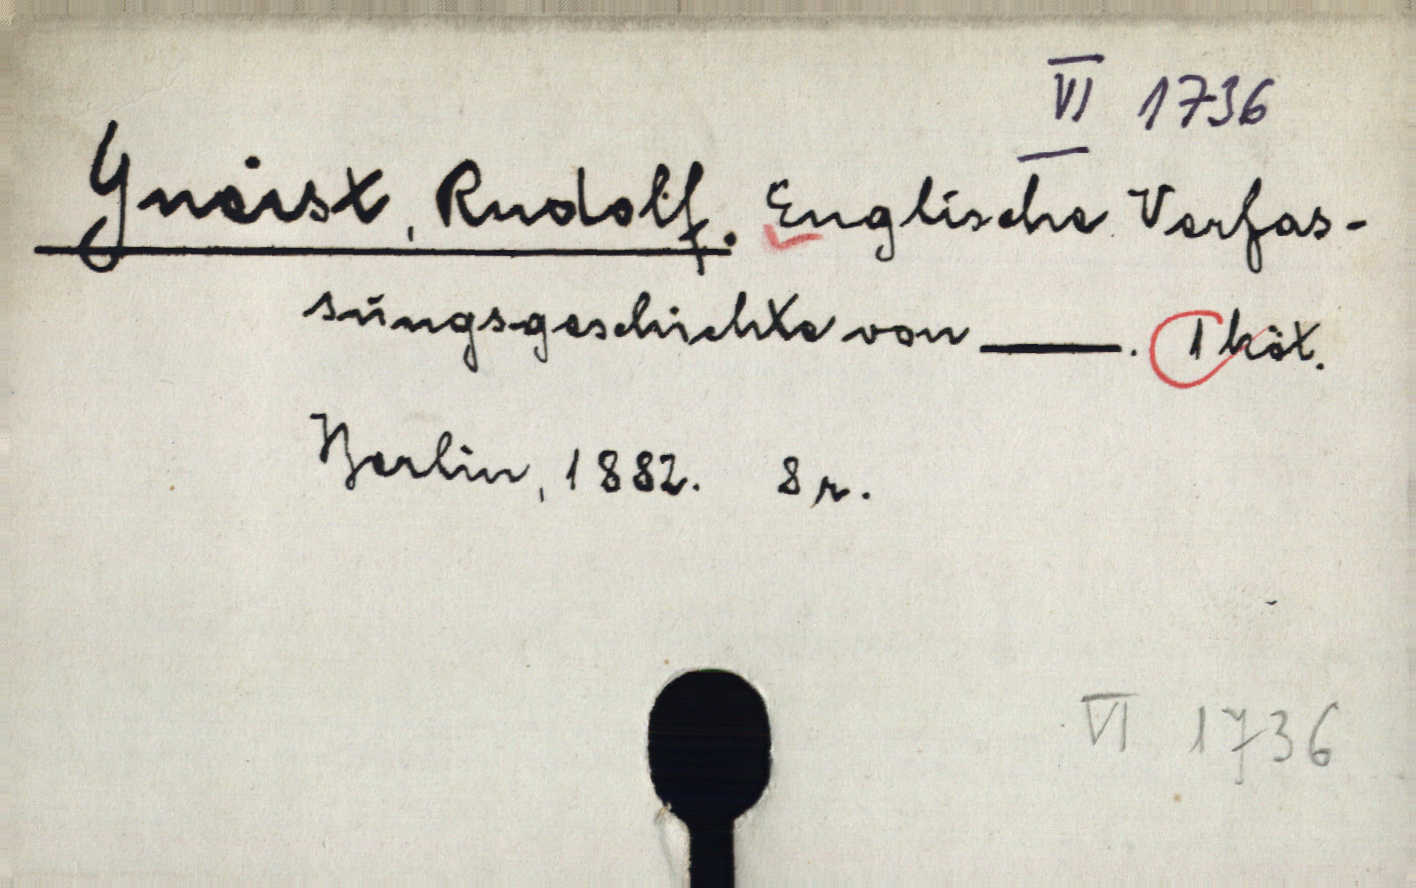 VI 1736
Gneist, Rudolf. Englische Verfas-
sungsgeschichte von ——. 1 köt.
Berlin, 1882. 8 r.
VI 1736